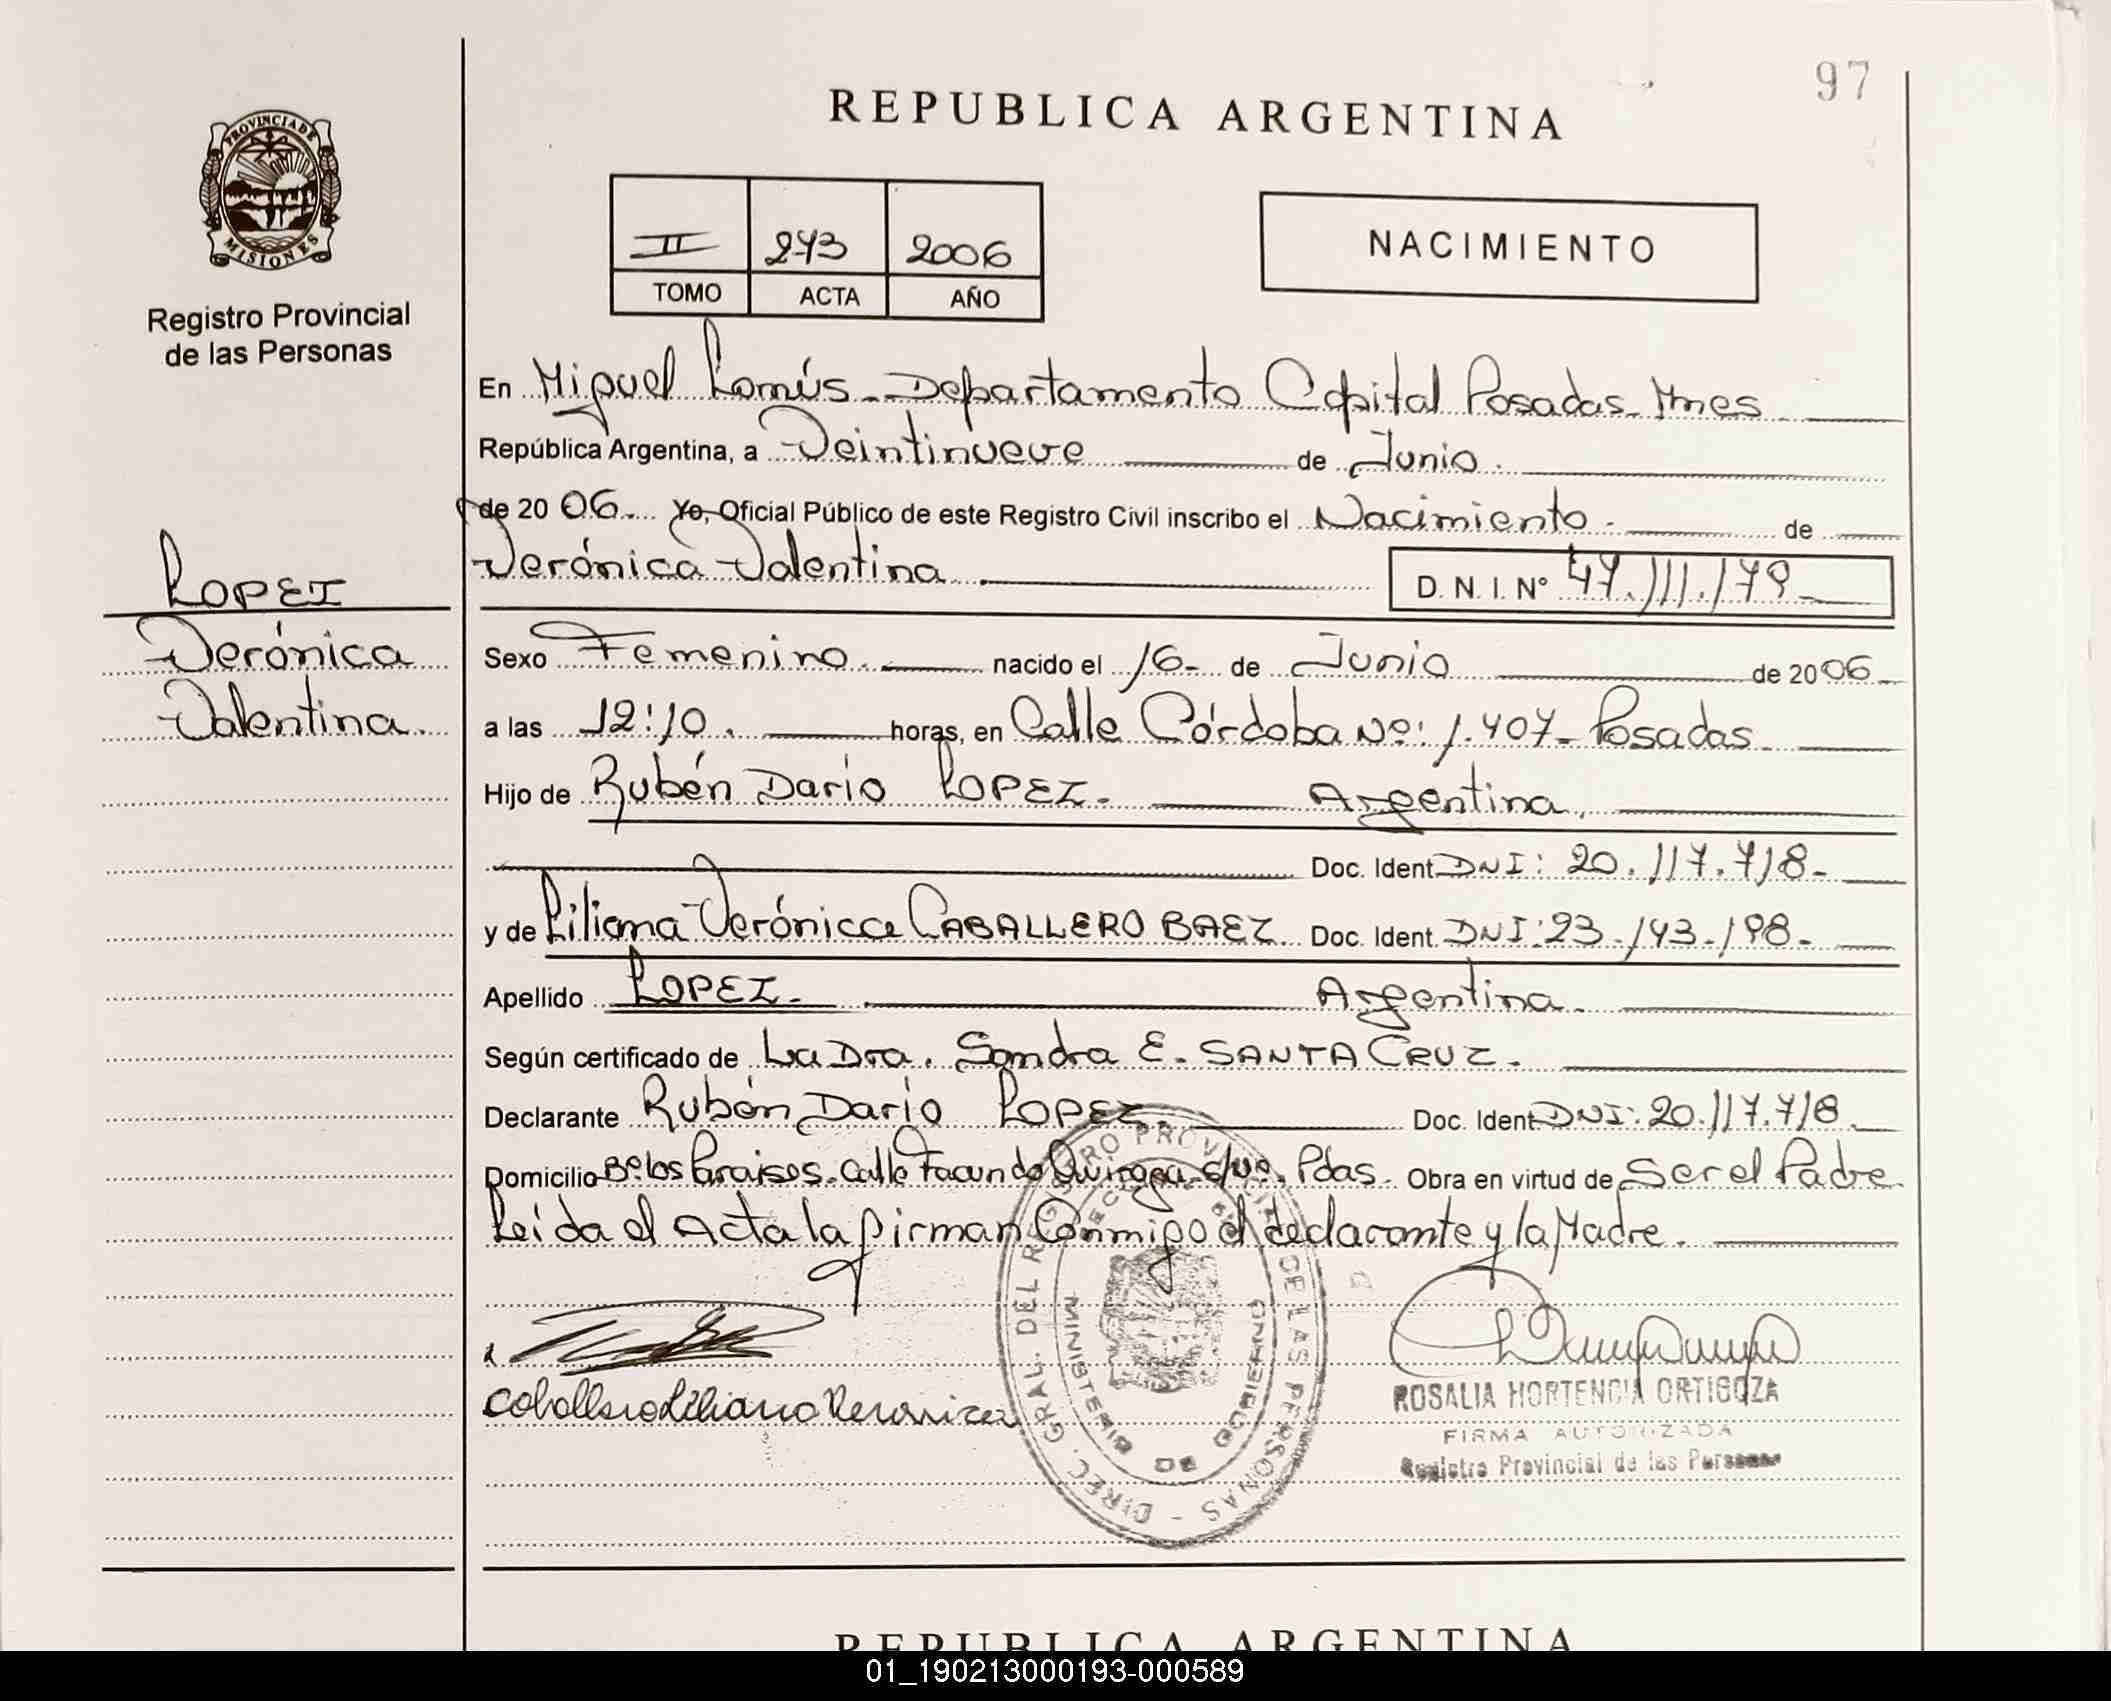 97
REPUBLICA ARGENTINA
PROVINCIA DE
MISIONES
Registro Provincial
de las Personas
II 273 2006
TOMO ACTA AÑO
NACIMIENTO
En Miguel Lanús - Departamento Capital Posadas - Mnes
República Argentina, a Veintinueve de Junio.
de 2006. Yo, Oficial Público de este Registro Civil inscribo el Nacimiento. de
Verónica Valentina D. N. I. Nº 47.111.179
LOPEZ
Verónica
Valentina.
Sexo Femenino. nacido el 16- de Junio de 2006
a las 12:10. horas, en Calle Córdoba Nº: 1.407- Posadas
Hijo de Rubén Dario LOPEZ. Argentina.
Doc. Ident. DNI: 20.117.718-
y de Liliana Verónica CABALLERO BAEZ Doc. Ident. DNI: 23.143.198-
Apellido LOPEZ. Argentina.
Según certificado de La Dra. Sandra E. SANTA CRUZ.
Declarante Rubén Dario LOPEZ Doc. Ident DNI: 20.117.718.
Domicilio Bº los Paraisos. Calle Facundo Quiroga s/nº. Pdas. Obra en virtud de Ser el Padre
Leída el Acta la firman Conmigo el declarante y la Madre.
DIREC. GRAL. DEL REGISTRO PROVINCIAL DE LAS PERSONAS
MINISTERIO DE GOBIERNO
Caballero Liliana Veronica
ROSALIA HORTENCIA ORTIGOZA
FIRMA AUTORIZADA
Registro Provincial de las Personas
REPUBLICA ARGENTINA
01_190213000193-000589